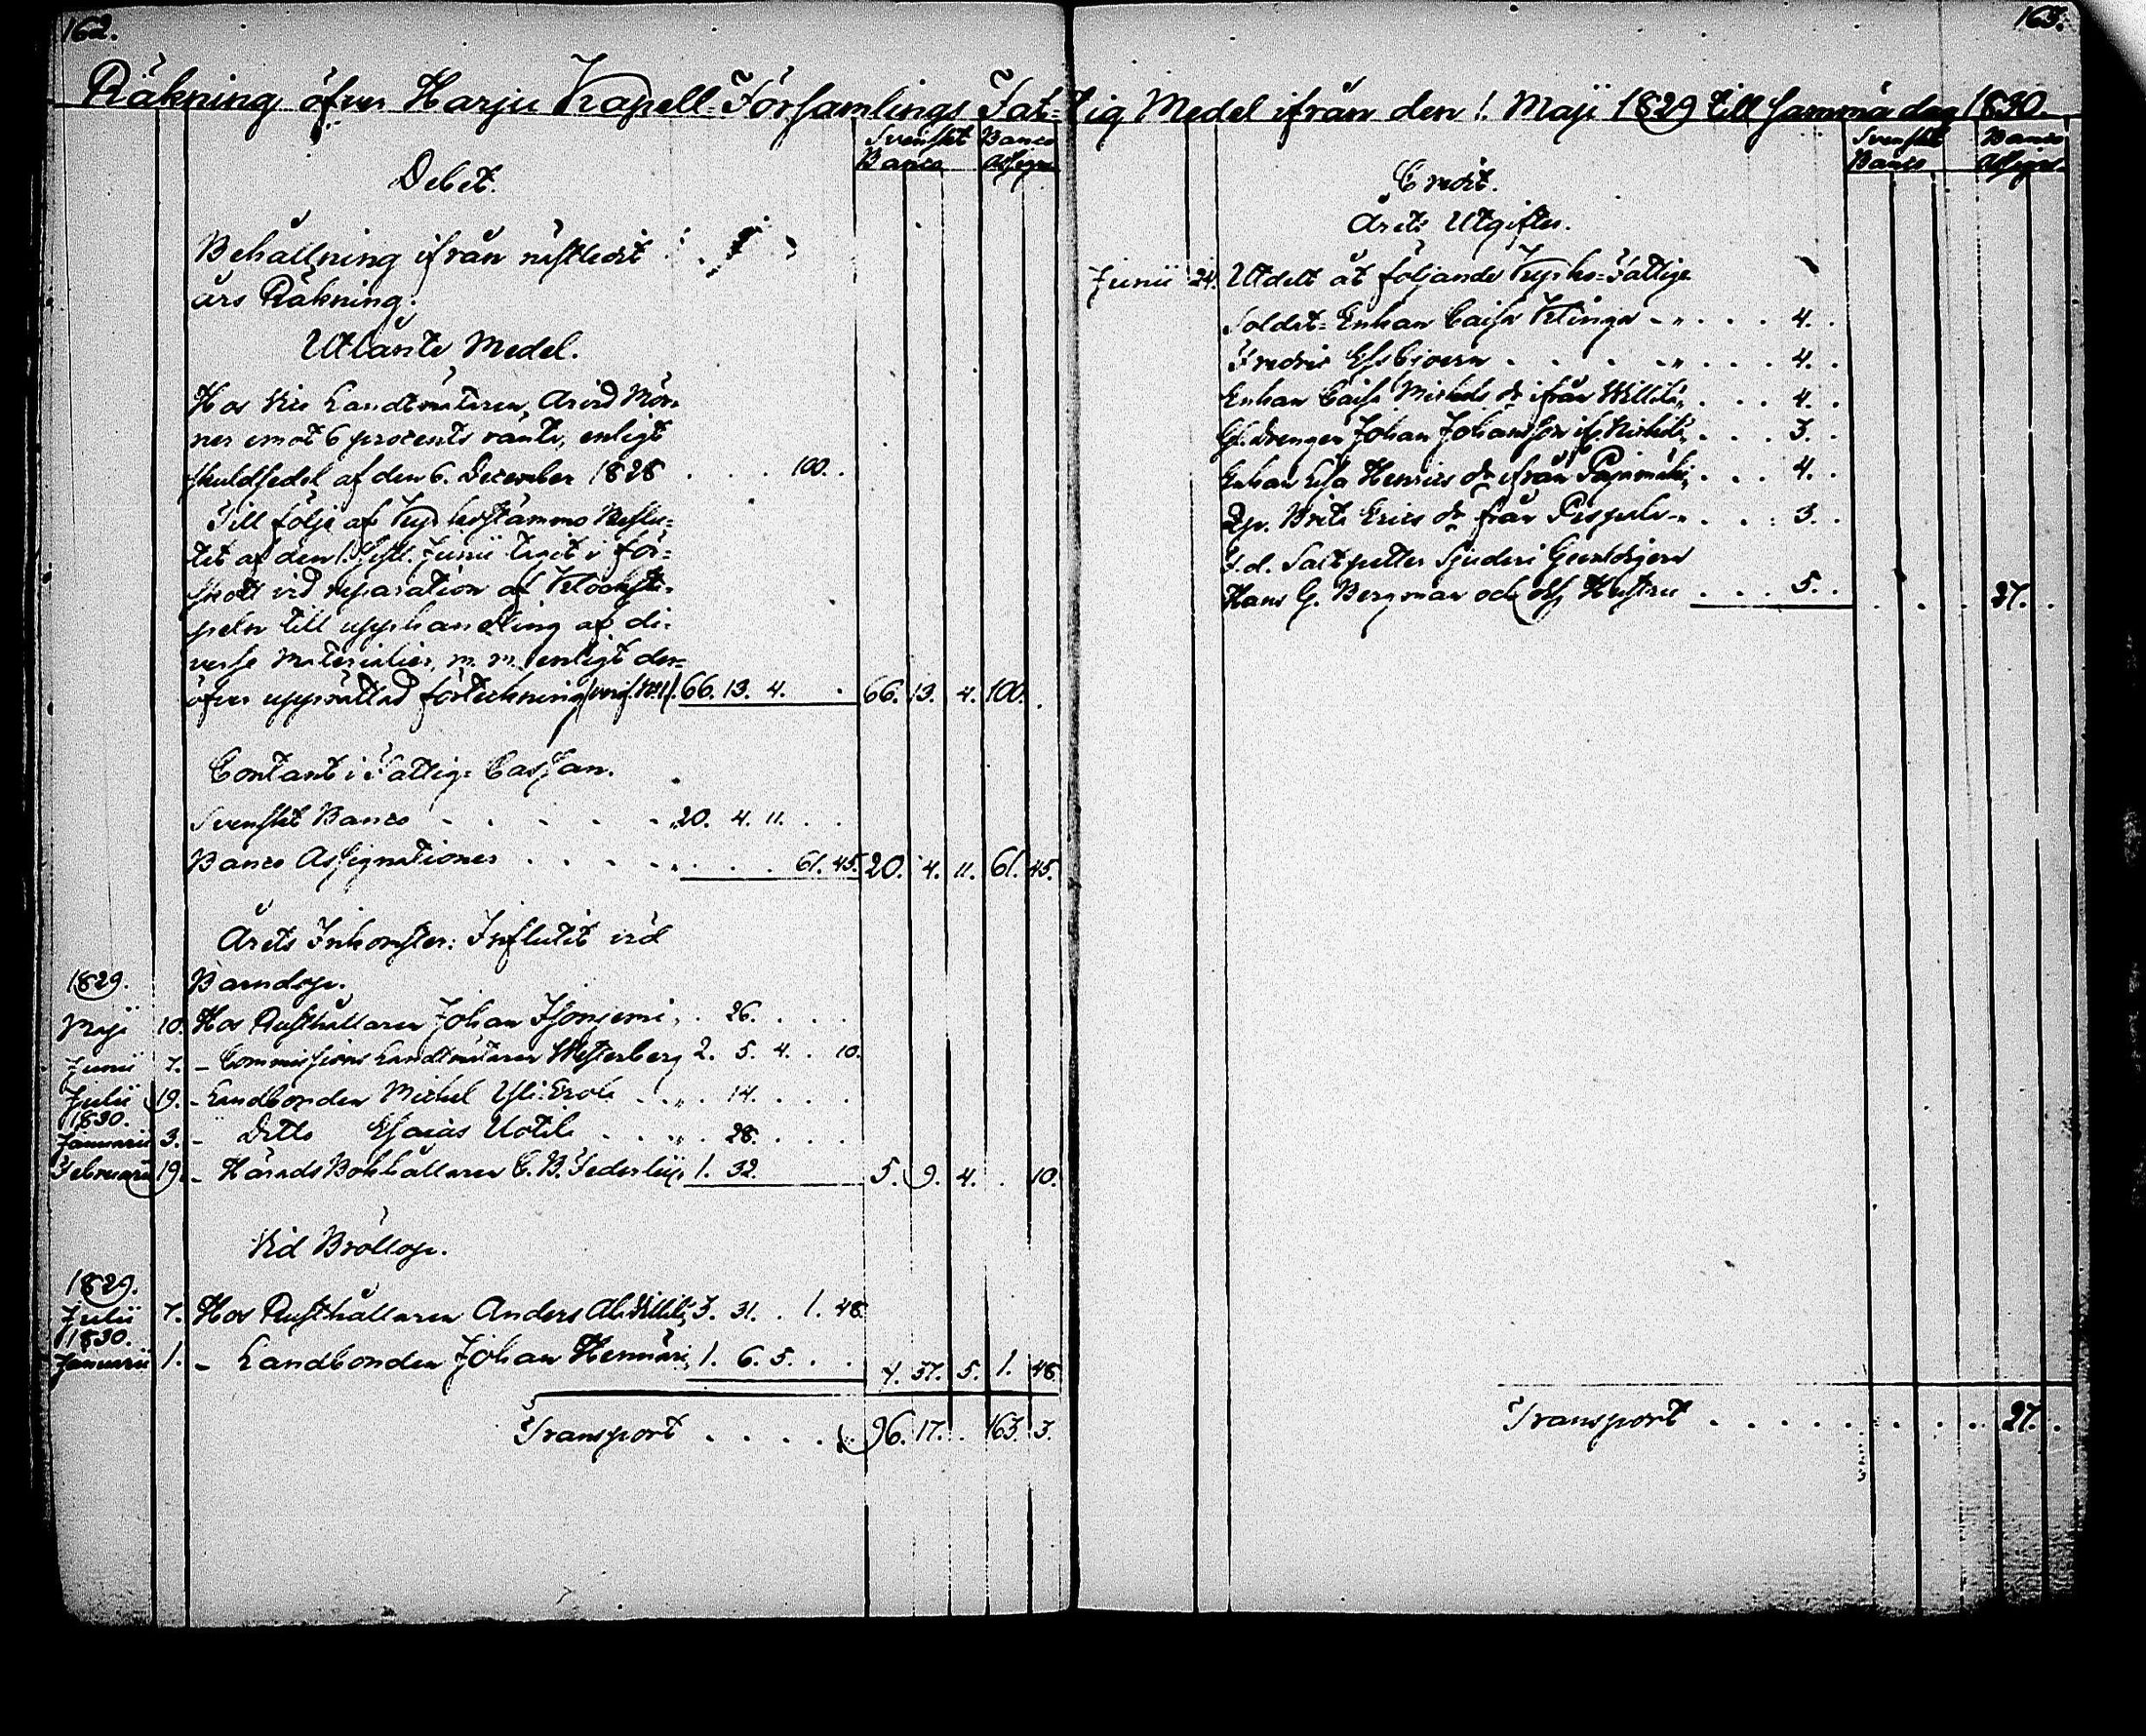 162.
Räkning öfver Harju Kapell-Församlings Fat-
Svenskt Banco
Banco Assign.
Debet.
Behållning ifrån nästledit
års Räkning.
Utlånte Medel.
Hos Vice Landtmätaren, Arvid Mör-
ner emot 6 procents ränta, enligt
skuldsedel af den 6. December 1828 . . . 100. .
Till följe af Kyrkostämmo Beslu-
tet af den 1. sistl. Junii tagit i för-
skott vid reparation af Klocksta-
peln till upphandling af di-
verse Materialier, m. m. enligt der-
öfver upprättad förteckning (verif. N:1). 66. 13. 4. . 66. 13. 4. 100. .
Contant i Fattig-Cassan.
Svenskt Banco . . . . . 20. 4. 11. . .
Banco Assignationer . . . . . . . 61. 45. 20. 4. 11. 61. 45.
Årets Inkomster: Influtit vid
1829. Barndop.
Maji 10. Hos Rusthållaren Johan . 26. . . .
Junii 7. – Commissions Landtmätaren Westerberg 2. 5. 4. . 10.
Julii 19. – Landbonden Michel . . „ . 14. . . .
1830.
Januarii 3. – Ditto Esaias Uotila . . „ . 28. . . .
Februarii 19. – Härads Bokhållaren C. B. Federley, 1. 32. 5. 9. 4. . 10.
Vid Bröllop.
1829.
Julii 7. Hos Rusthållaren Anders 3. 31. . 1. 48.
1830.
Januarii 1. – Landbonden Johan 1. 6. 5. . . 4. 37. 5. 1. 48.
Transport . . . . . 96. 17. . 163. 3.
163.
tig Medel ifrån den 1. Maji 1829 till samma dag 1830.
Svenskt Banco
Banco Assign.
Credit.
Årets Utgifter.
Junii 24. Utdelt åt följande Kyrko-Fattige
Soldat-Enkan Caisa Klinga – „ . . . 4. .
Fredric . . . . „ . . . 4. .
Enkan Caisa Michels dr ifrån Willila, . . . 4. .
Gl. Drengen Johan Johansson ifr. . . . 3. .
Enkan Lisa Henrics dr ifrån . . . 4. .
Pig. Brita Erics dr från . . . 3. .
F. d. Saltpetter Sjuderi
Hans G. Bergman och dess Hustru . . . 5. . . . . 27. .
Transport . . . . . . . . . 27. .